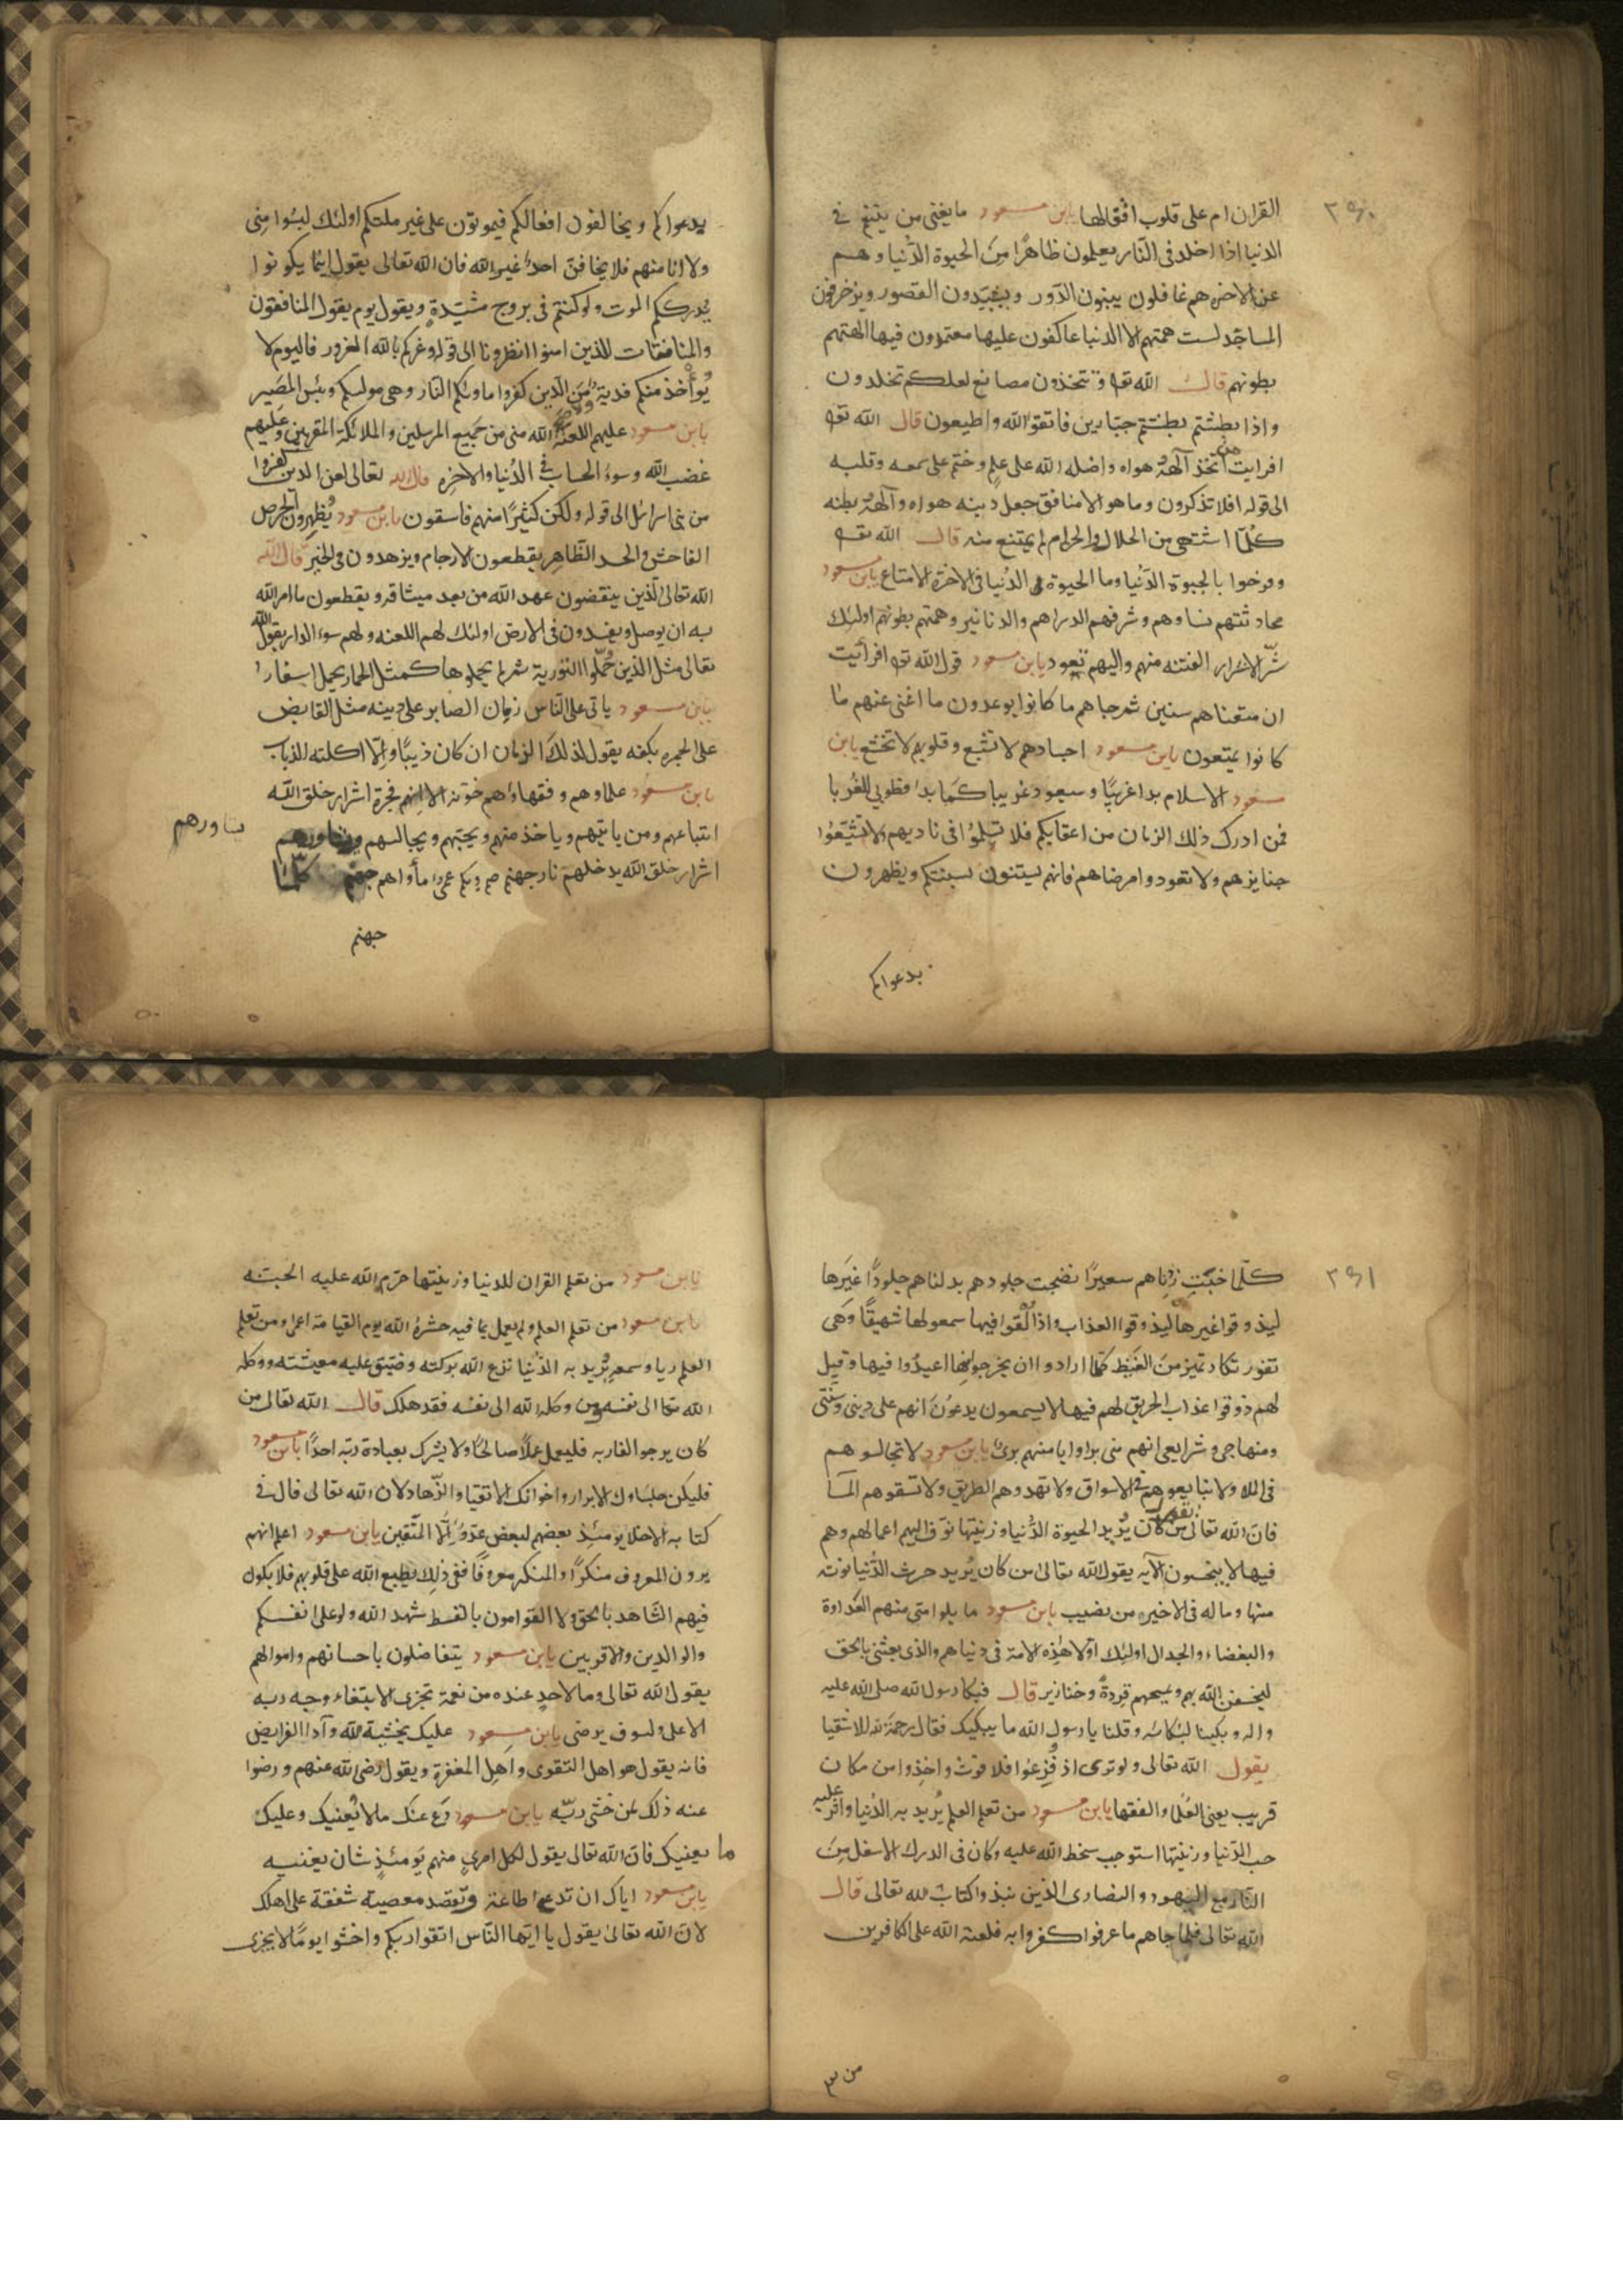 ٢٤٠
القران ام على قلوب اقفالها يابن مسعود ما يغنى من يتنعم فى
الدنيا اذا اخلد فى النار يعلمون ظاهرًا من الحيوة الدنيا وهم
عن الاخرة هم غافلون يبنون الدور ويشيدون القصور ويزخرفون
المساجد ليست همتهم الا الدنيا عاكفون عليها معتمدون فيها الهتهم
بطونهم قال الله تعا وتتخذون مصانع لعلكم تخلدون
واذا بطشتم بطشتم جبارين فاتقوا الله واطيعون قال الله تعا
افرايت من اتخذ آلهه هواه واضله الله على علم وختم على سمعه وقلبه
الى قوله افلا تذكرون وما هو الا منافق جعل دينه هواه وآلهه بطنه
كلما اشتهى من الحلال والحرام لم يمتنع منه قال الله تعا
وفرحوا بالحيوة الدنيا وما الحيوة الدنيا فى الاخرة الا متاع يابن مسعود
محاد ثتهم نساوهم وشرفهم الدراهم والدنانير وهمتهم بطونهم اولئك
شر الاشرار الفتنه منهم واليهم تعود يابن مسعود قول الله تعا افرأيت
ان متعناهم سنين ثم جاهم ما كانوا يوعدون ما اغنى عنهم ما
كانوا يمتعون يابن مسعود اجسادهم لا تشبع وقلوبهم لا تخشع يابن
مسعود الاسلام بدا غريبًا وسيعود غريبا كما بدا فطوبى للغربا
فمن ادرك ذلك الزمان من اعقابكم فلا تسلموا فى ناديهم ولا تشيعوا
جنايزهم ولا تعودوا مرضاهم فانهم يستنون بسنتكم ويظهرون
يدعواكم
يدعواكم ويخالفون افعالكم فيموتون على غير ملتكم اولئك ليسوا منى
ولا انا منهم فلا يخافن احدًا غير الله فان الله تعالى يقول اينما يكونوا
يدرككم الموت ولو كنتم فى بروج مشيدة ويقول يوم يقول المنافقون
والمنافقات للذين امنوا انظرونا الى قوله وغركم بالله الغرور فاليوم لا
يؤخذ منكم فدية ولا من الذين كفروا ماويكم النار وهى موليكم وبئس المصير
يابن مسعود عليهم اللعنة الله منى من جميع المرسلين والملائكة المقربين وعليهم
غضب الله وسوء الحساب فى الدنيا والاخره قال الله تعالى لعن الذين كفروا
من بنى اسرائل الى قوله ولكن كثيرًا منهم فاسقون يابن مسعود يظهرون الحرص
الفاحش والحسد الظاهر يقطعون الارحام ويزهدون فى الخير قال الله
الله تعالى الذين ينقضون عهد الله من بعد ميثاقه ويقطعون ما امر الله
به ان يوصل ويفسدون فى الارض اولئك لهم اللعنه ولهم سوء الدار يقول الله
تعالى مثل الذين حملوا التورية ثم لم يحملوها كمثل الحمار يحمل اسفارا
يابن مسعود ياتى على الناس زمان الصابر على دينه مثل القابض
على الجمره بكفه يقول لذلك الزمان ان كان ذيبًا والا اكلته الذياب
يابن مسعود علماوهم وفقهاؤهم خونه الا انهم فجرة اشرار خلق الله
اتباعهم ومن ياتيهم وياخذ منهم ويحبهم ويجالسهم ويشاورهم
يشاورهم
اشرار خلق الله يدخلهم نار جهنم صم بكم عمى ماواهم جهنم كلما
جهنم
٢٤١
كلما خبت زدناهم سعيرًا نضجت جلودهم بدلناهم جلودًا غيرها
ليذوقوا غيرها ليذوقوا العذاب واذا القوا فيها سمعوا لها شهيقًا وهى
تفور تكاد تميز من الغيظ كلما ارادوا ان يخرجوا منها اعيدوا فيها وقيل
لهم ذوقوا عذاب الحريق لهم فيها لا يسمعون يدعون انهم على دينى وسنتى
ومنهاجى وشرايعى انهم منى براوا وانا منهم برئ يابن مسعود لا تجالسوهم
فى الملا ولا تبايعوهم فى الاسواق ولا تهدوهم الطريق ولا تسقوهم الما
فان الله تعالى يقول من كان يريد الحيوة الدنيا وزينتها نوف اليهم اعمالهم وهم
فيها لا يبخسون الآيه يقول الله تعالى من كان يريد حرث الدنيا نوته
منها وما له فى الاخيره من نصيب يابن مسعود ما بلوا متى منهم العداوة
والبغضاء والجدال اولئك اولا هذه الامة فى دنياهم والذى بعثنى بالحق
ليخسفن الله بهم ويمسحهم قردة وخنازير قال فبكا رسول الله صلى الله عليه
واله وبكينا لبكائه وقلنا يا رسول الله ما يبكيك فقال رحمة للاشقيا
يقول الله تعالى ولو ترى اذ فزعوا فلا فوت واخذوا من مكان
قريب يعنى العلما والفقها يابن مسعود من تعلم العلم يريد به الدنيا واثر عليه
حب الدنيا وزينتها استوجب سخط الله عليه وكان فى الدرك الاسفل من
النار مع اليهود والنصارى الذين نبذوا كتاب لله تعالى قال
الله تعالى فلما جاهم ما عرفوا كفروا به فلعنة الله على الكافرين
يابن مسعود من تعلم القران للدنيا وزينتها حرم الله عليه الجنة
يابن مسعود من تعلم العلم ولم يعمل بما فيه حشره الله يوم القيامة اعمى ومن تعلم
العلم ريا وسمعه يريد به الدنيا نزع الله بركته وضيق عليه معيشته ووكله
الله تعا الى نفسه ومن وكله الله الى نفسه فقد هلك قال الله تعالى من
كان يرجو القا ربه فليعمل عملًا صالحًا ولا يشرك بعبادة ربه احدًا يابن مسعود
فليكن جلساوك الابرار واخوانك الاتقيا والزهاد لان الله تعالى قال فى
كتابه الاخلا يومئذ بعضهم لبعض عدو الا المتقين يابن مسعود اعلم انهم
يرون المعروف منكرًا والمنكر معروفًا ففى ذلك يطبع الله على قلوبهم فلا يكون
فيهم الشاهد بالحق ولا القوامون بالقسط شهد الله ولو على انفسكم
والوالدين والاقربين يابن مسعود يتفاضلون باحسانهم واموالهم
يقول الله تعالى وما لاحد عنده من نعمة تجزى الا ابتغاء وجه ربه
الاعلى ولسوف يرضى يابن مسعود عليك بخشية الله وآدا الفرايض
فانه يقول هو اهل التقوى واهل المغفرة ويقول رضى الله عنهم ورضوا
عنه ذلك لمن خشى ربه يابن مسعود دع عنك ما لا يعنيك وعليك
ما يعنيك فان الله تعالى يقول لكل امرى منهم يومئذ شان يغنيه
يابن مسعود اياك ان تدع اطاعة وتقصد معصية شفقة على اهلك
لان الله تعالى يقول يا ايها الناس اتقوا ربكم واخشوا يومًا لا يجزى